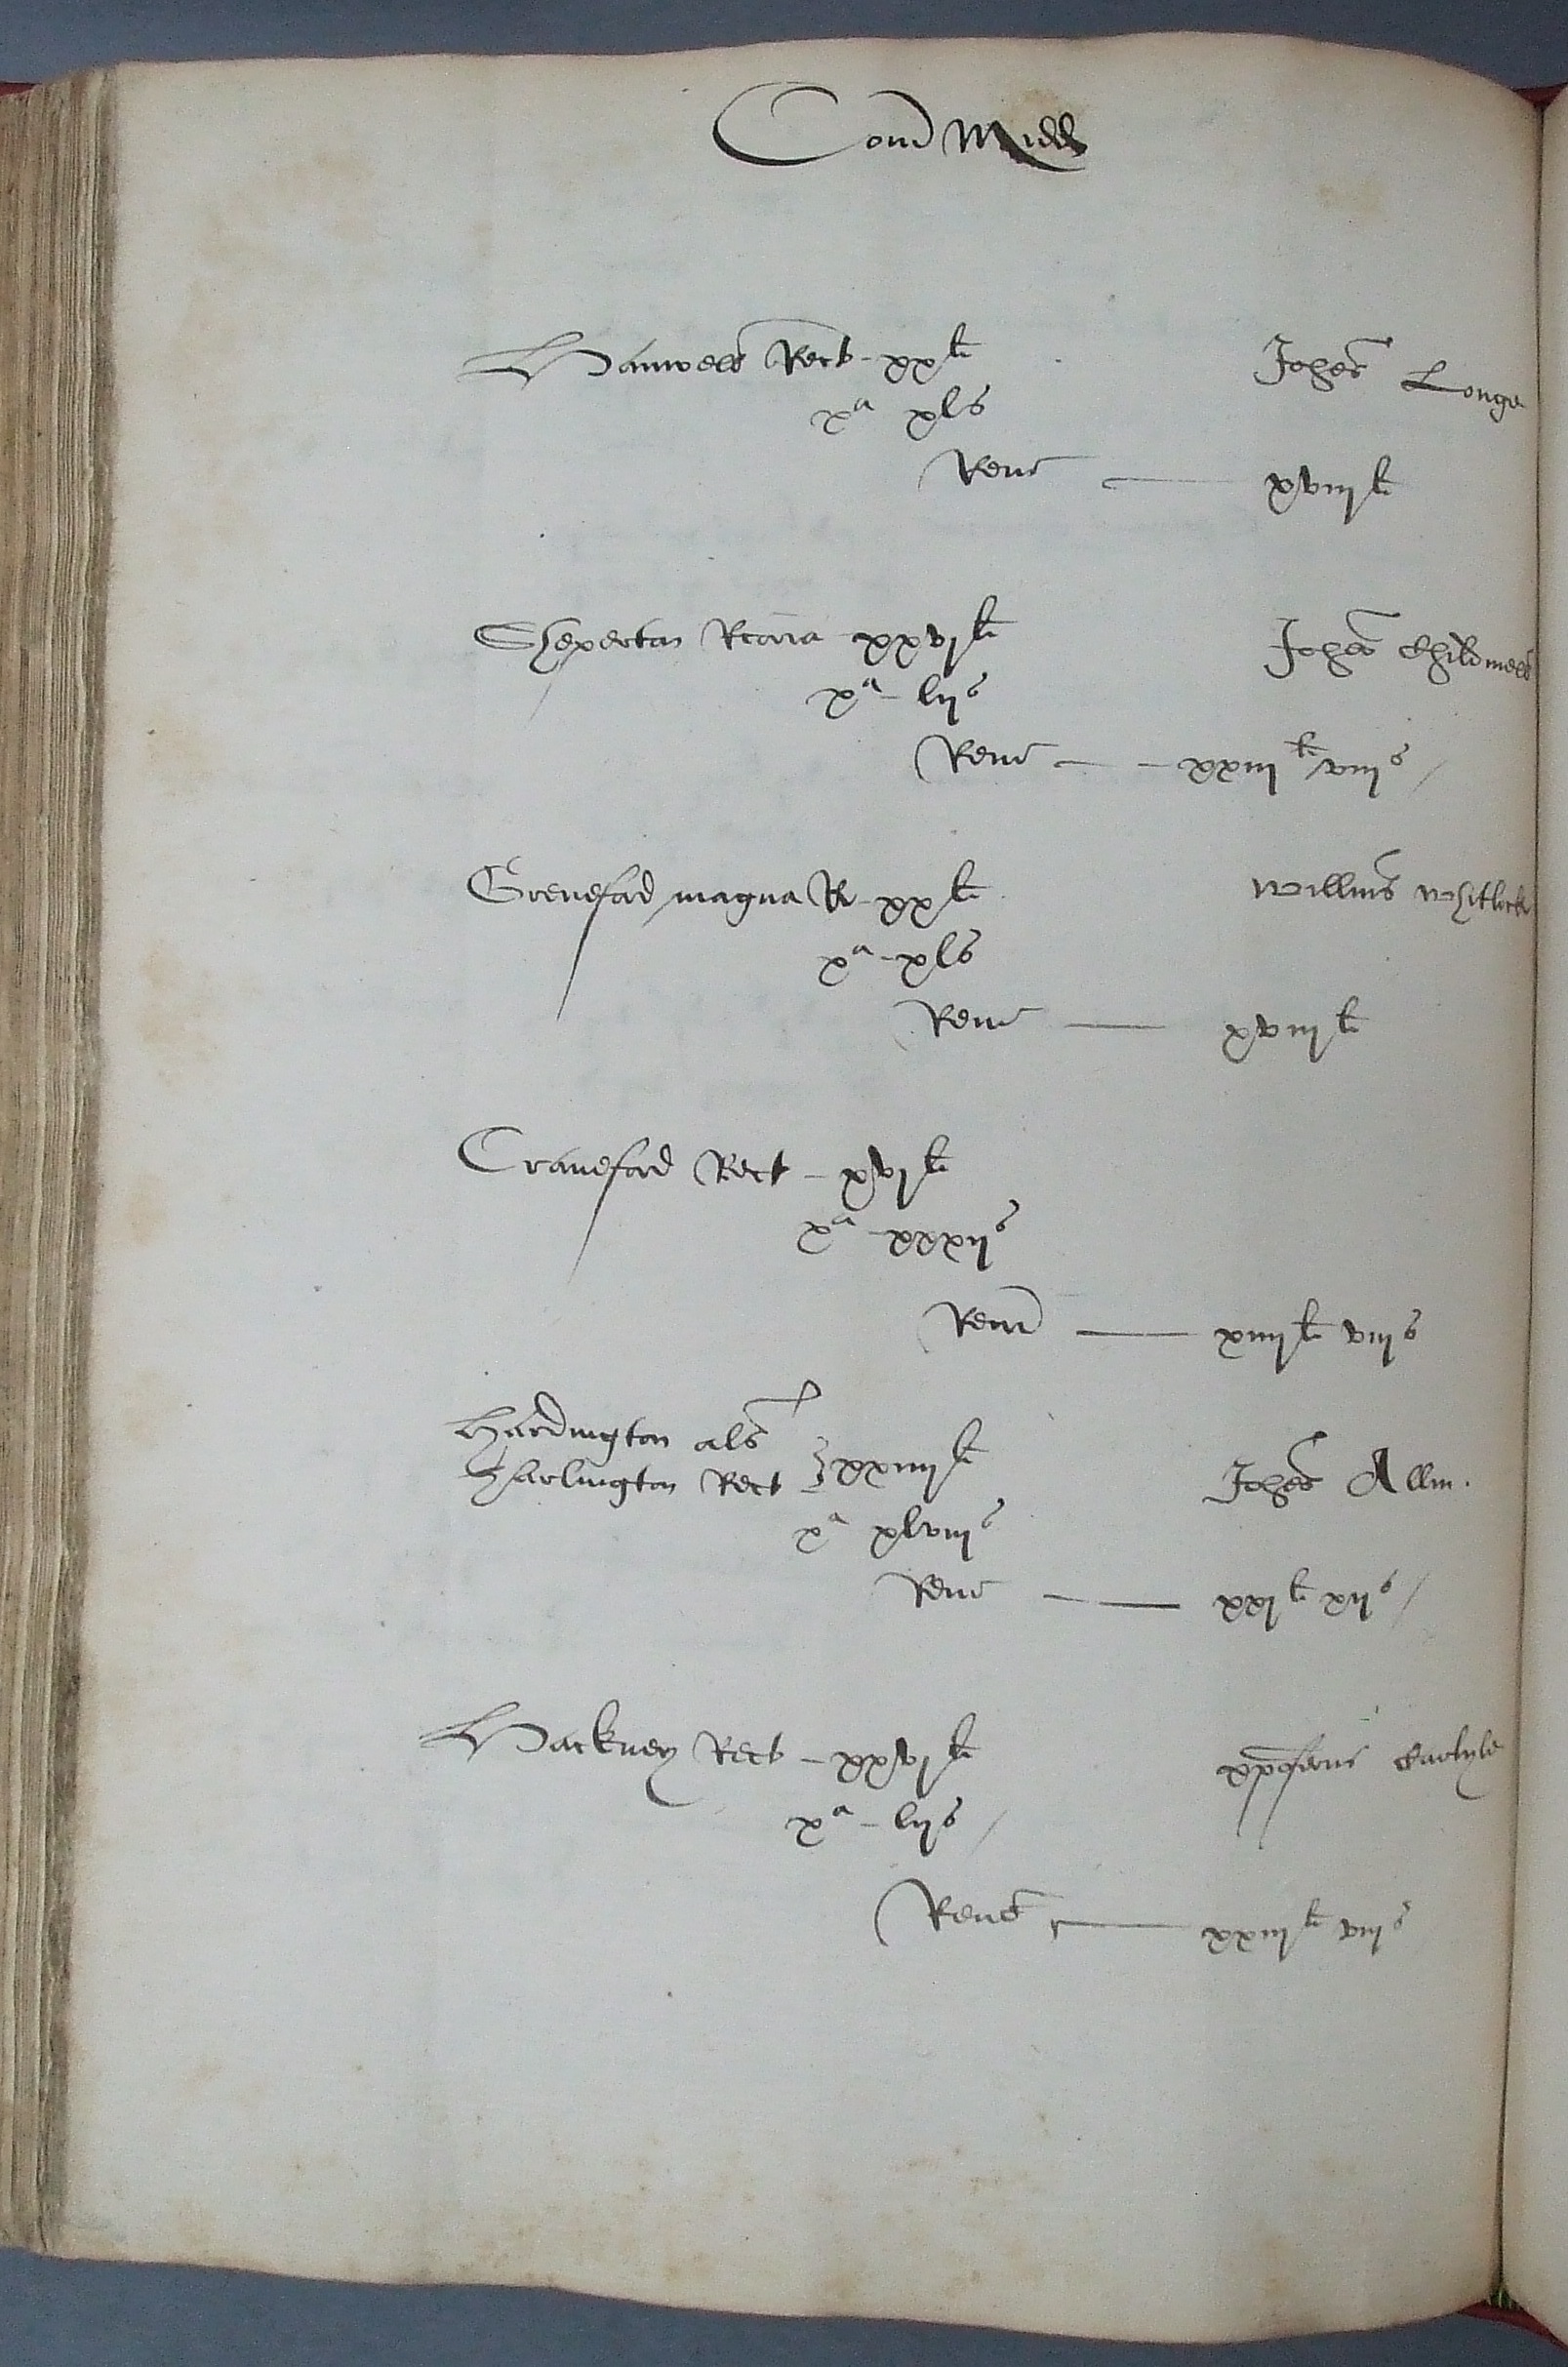 Com Midd
Hanwell Rect - xx li Johes Longe
xa xls
Rem — xviij li
Sheperton Rcoria xxvj li Johes Childmell
xa - lijs
Rem — — xxiij li viijs /
Greneford magna R - xx li Willms Whitlock
xa - xls
Rem — xviij li
Craneford Rect - xvj li
xa - xxxijs
Rem — xiiij li viijs
Hardington als
Harlington Rect } xxiiij li Johes Allin .
xa xlviijs
Rem — — xxj li xijs /
Hackney Rect - xxvj li xpoferus Carlyle
xa - lijs /
Rem — xxiij li viijs